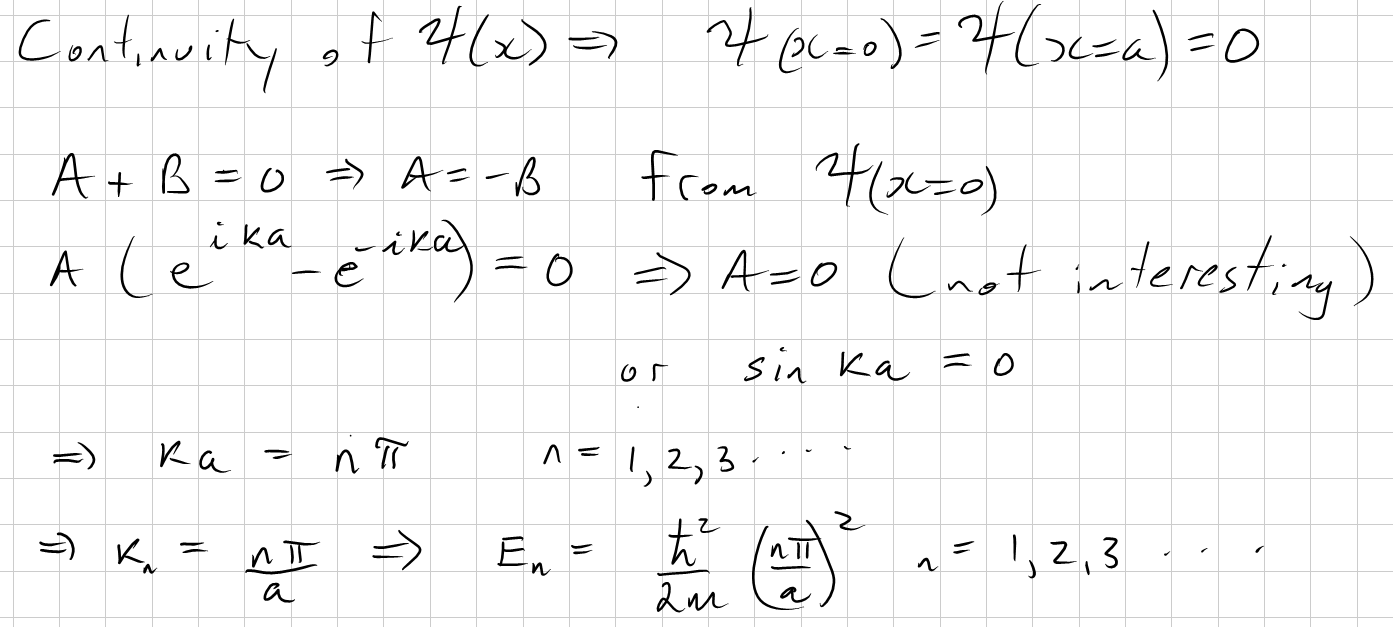 Continuity of Ψ(x) ⇒ Ψ(x=0) = Ψ(x=a) = 0
A + B = 0 ⇒ A = -B from Ψ(x=0)
A (e^{ika} - e^{-ika}) = 0 ⇒ A=0 (not interesting)
or sin ka = 0
⇒ ka = nπ n = 1, 2, 3 ....
⇒ k_n = nπ/a ⇒ E_n = ħ²/2m (nπ/a)² n = 1, 2, 3 ....